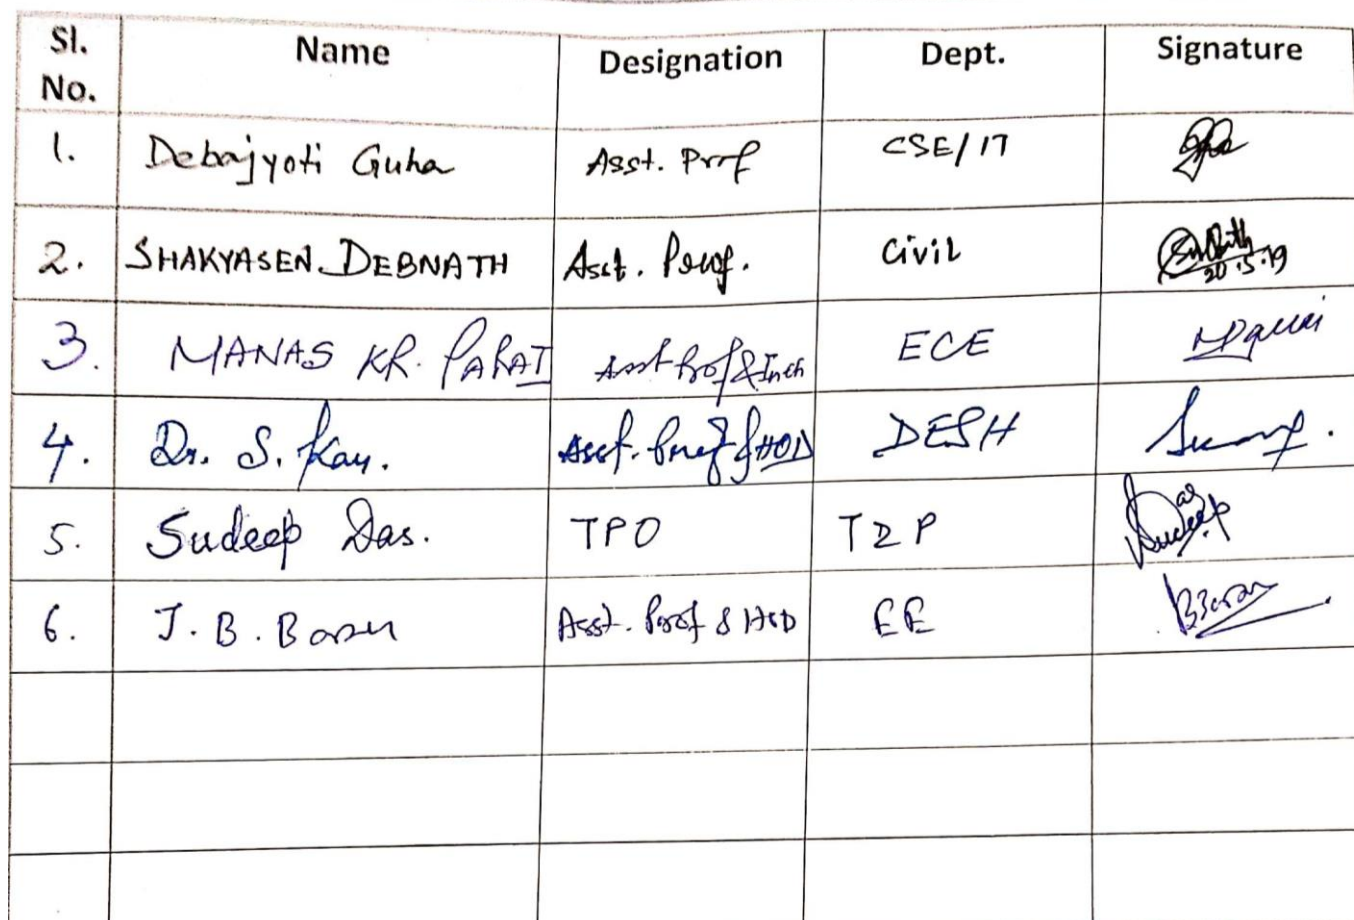 Sl. No. Name Designation Dept. Signature
1. Debajyoti Guha Asst. Prof CSE/IT
2. SHAKYASEN DEBNATH Asst. Prof. Civil 20.5.19
3. MANAS KR. PARAI Asst Prof & Inch ECE
4. Dr. S. Kar. Asst. Prof & HOD DESH
5. Sudeep Das. TPO T&P Sudeep Das
6. J. B. Basu Asst. Prof & HOD EE